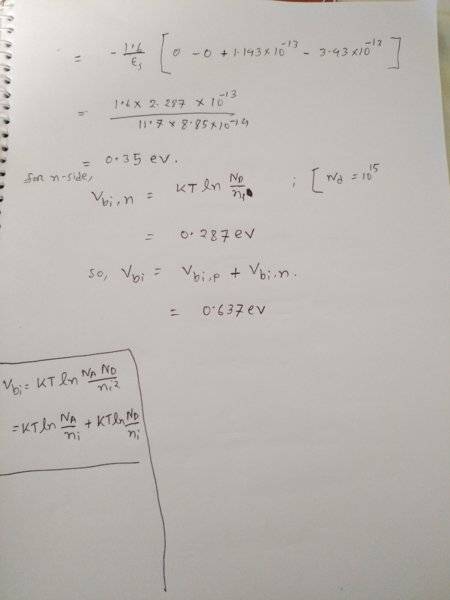 = - 1.6/ϵs [ 0 - 0 + 1.143×10^-13 - 3.43×10^-13 ]
= 1.6 × 2.287 × 10^-13 / 11.7 × 8.85×10^-14
= 0.35 eV.
for n-side,
Vbi,n = KT ln ND/ni ; [ Nd = 10^15
= 0.287 eV
so, Vbi = Vbi,p + Vbi,n.
= 0.637 eV
Vbi = KT ln NA ND/ni^2
= KT ln NA/ni + KT ln ND/ni